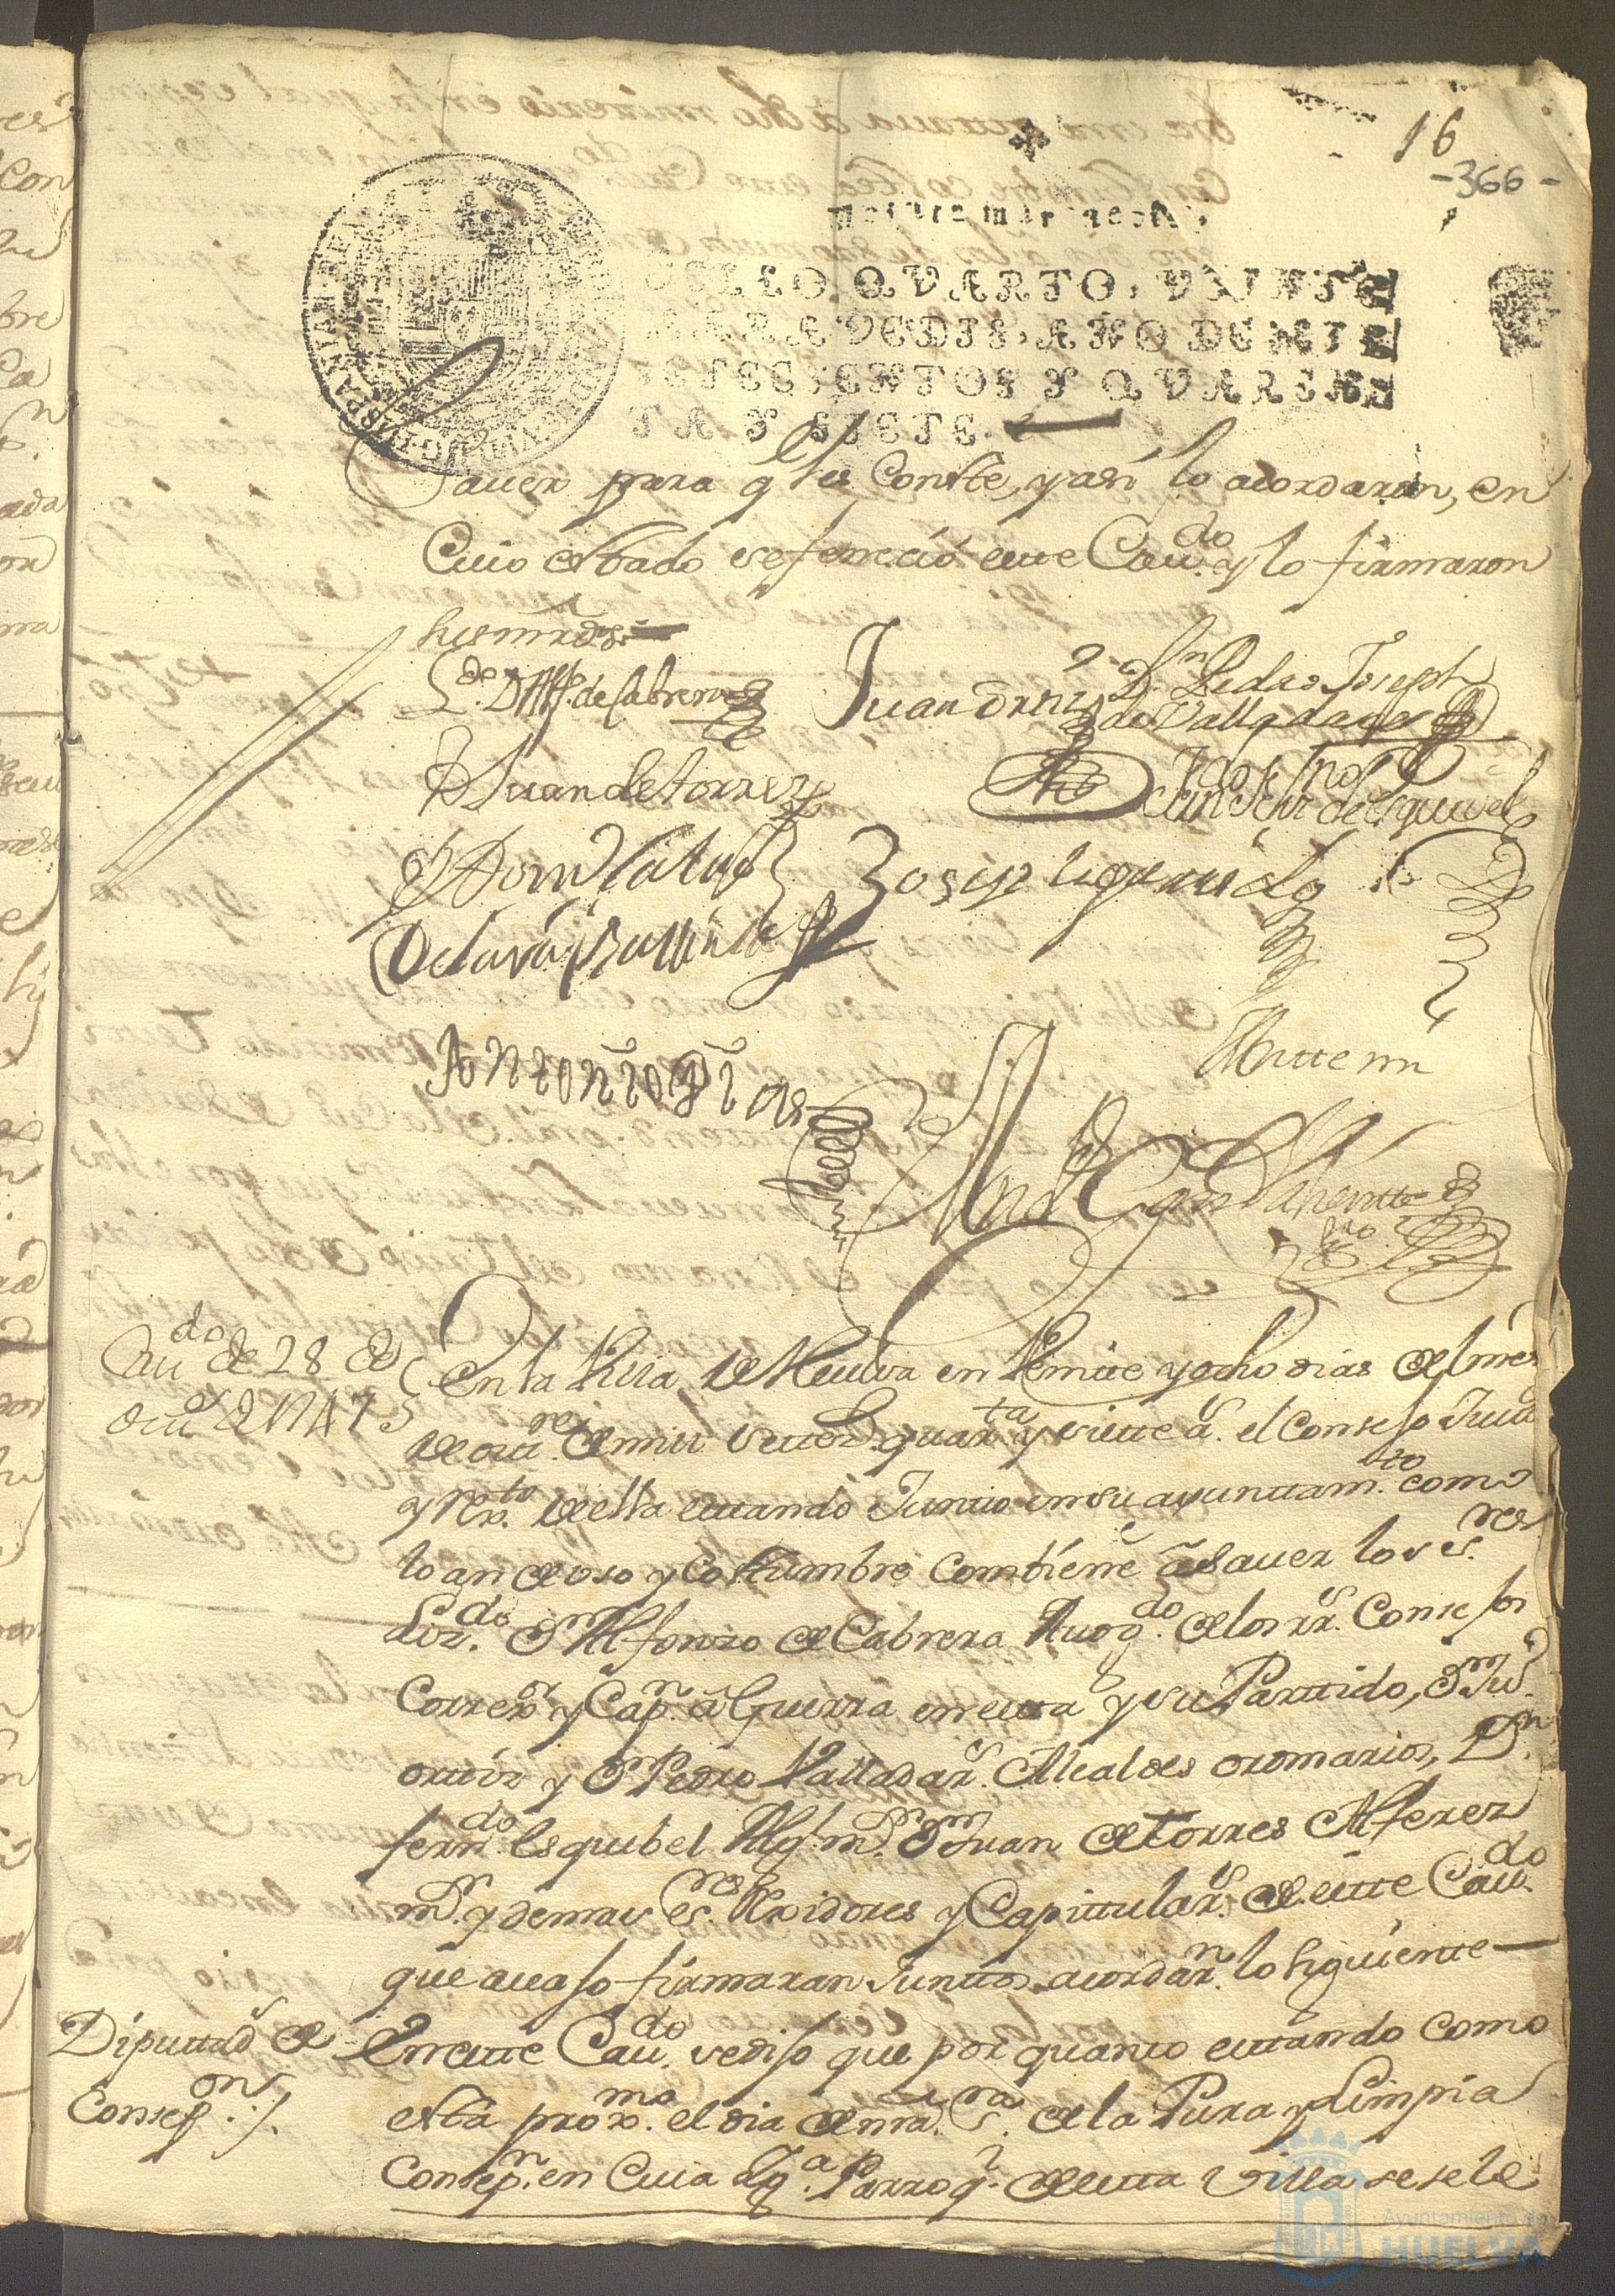 16
-366-
veinte maravedis.
SELLO QVARTO, VEINTE
MARAVEDIS, AÑO DE MIL
SETECIENTOS Y QVAREN
TA Y SIETE.
Sauer para q les Conste, y asi lo acordaron, en
Cuio estado se feneció este Cau.do y lo firmaron
sus mrds.
L.do D Alf.o de Cabrera
Juan Ortiz
D.n Pedro Joseph
de Valladares
D Juan de torres
de Esquivel
Antonio Dias
Antte mi
Cau.do de 28 de
otu.e de 1747
En la Villa de Huelva en Veinte y ocho dias del mes
de otu.re de mill setez.s quar.ta y siette a.s el Consejo Justi.a
y Rex.to de ella estando Junto en su ayuntam.to como
lo an de uso y Costumbre Combiene a sauer los s.res
Liz.do D.n Alfonzo de Cabrera Auog.do de los rr.s Consejos
Correx.or y Cap.n a Guerra en esta y su Partido, D.n Ju.o
ortiz y D.n Pedro Valladar.s Alcaldes ordinarios, D.n
fern.do Esquibel Alg.l m.or D.n Juan de torres Alferez
m.or y demas s.res Rexidores y Capittular.s de este Cau.do
que auajo firmaran Juntos acordar.n lo siguiente
Diputtad.s de
Consepz.on
En este Cau.do se dijo que por quanto estando como
está prox.mo el dia de nra. s.ra de la Pura y Limpia
Consepz.n en Cuia Ig.a Parroq.l de esta Villa se sele
Ayuntamiento de
HUELVA